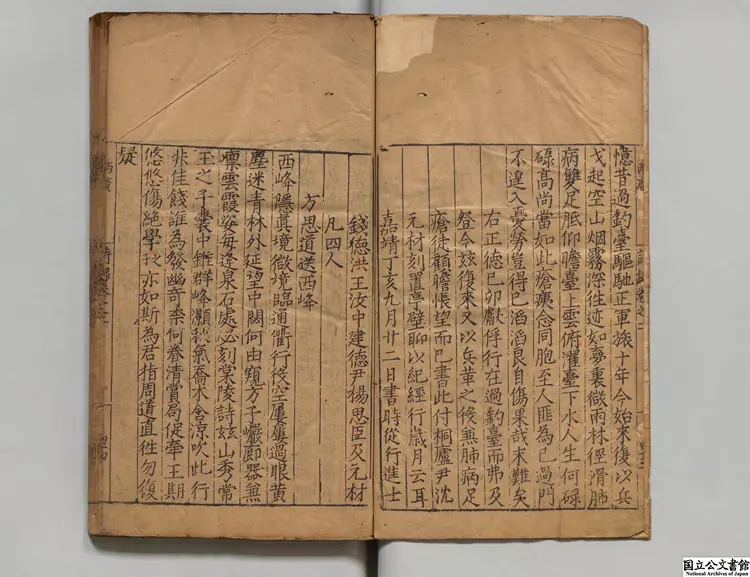 憶昔過釣臺驅馳正軍旅十年今始來復以兵
戈起空山烟霧深往迹如夢裏微雨林徑滑肺
病雙足胝仰瞻臺上雲俯濯臺下水人生何碌
碌高尚當如此瘡痍念同胞至人匪為己過門
不遑入憂勞豈得已滔滔良自傷果哉末難矣
右正德己卯獻俘行在過釣臺而弗及
登今玆復來又以兵革之役兼肺病足
瘡徒顧瞻悵望而已書此付桐廬尹沈
元材刻置亭壁聊以紀經行歲月云耳
嘉靖丁亥九月廿二日書時從行進士
錢德洪王汝中建德尹楊思臣及元材
凡四人
方思道送西峰
西峰隱真境微境臨通衢行役空屢屢過眼黃
塵迷青林外延望中閟何由窺方子巖廊器兼
稟雲霞姿每逢泉石處必刻棠陵詩玆山秀常
玉之子囊中錐群峰灝秋氣喬木含涼吹此行
非佳餞誰為發幽奇柰何眷清賞局促牽王期
悠悠傷絕學之子亦如斯為君指周道直往勿復
疑
国立公文書館
National Archives of Japan